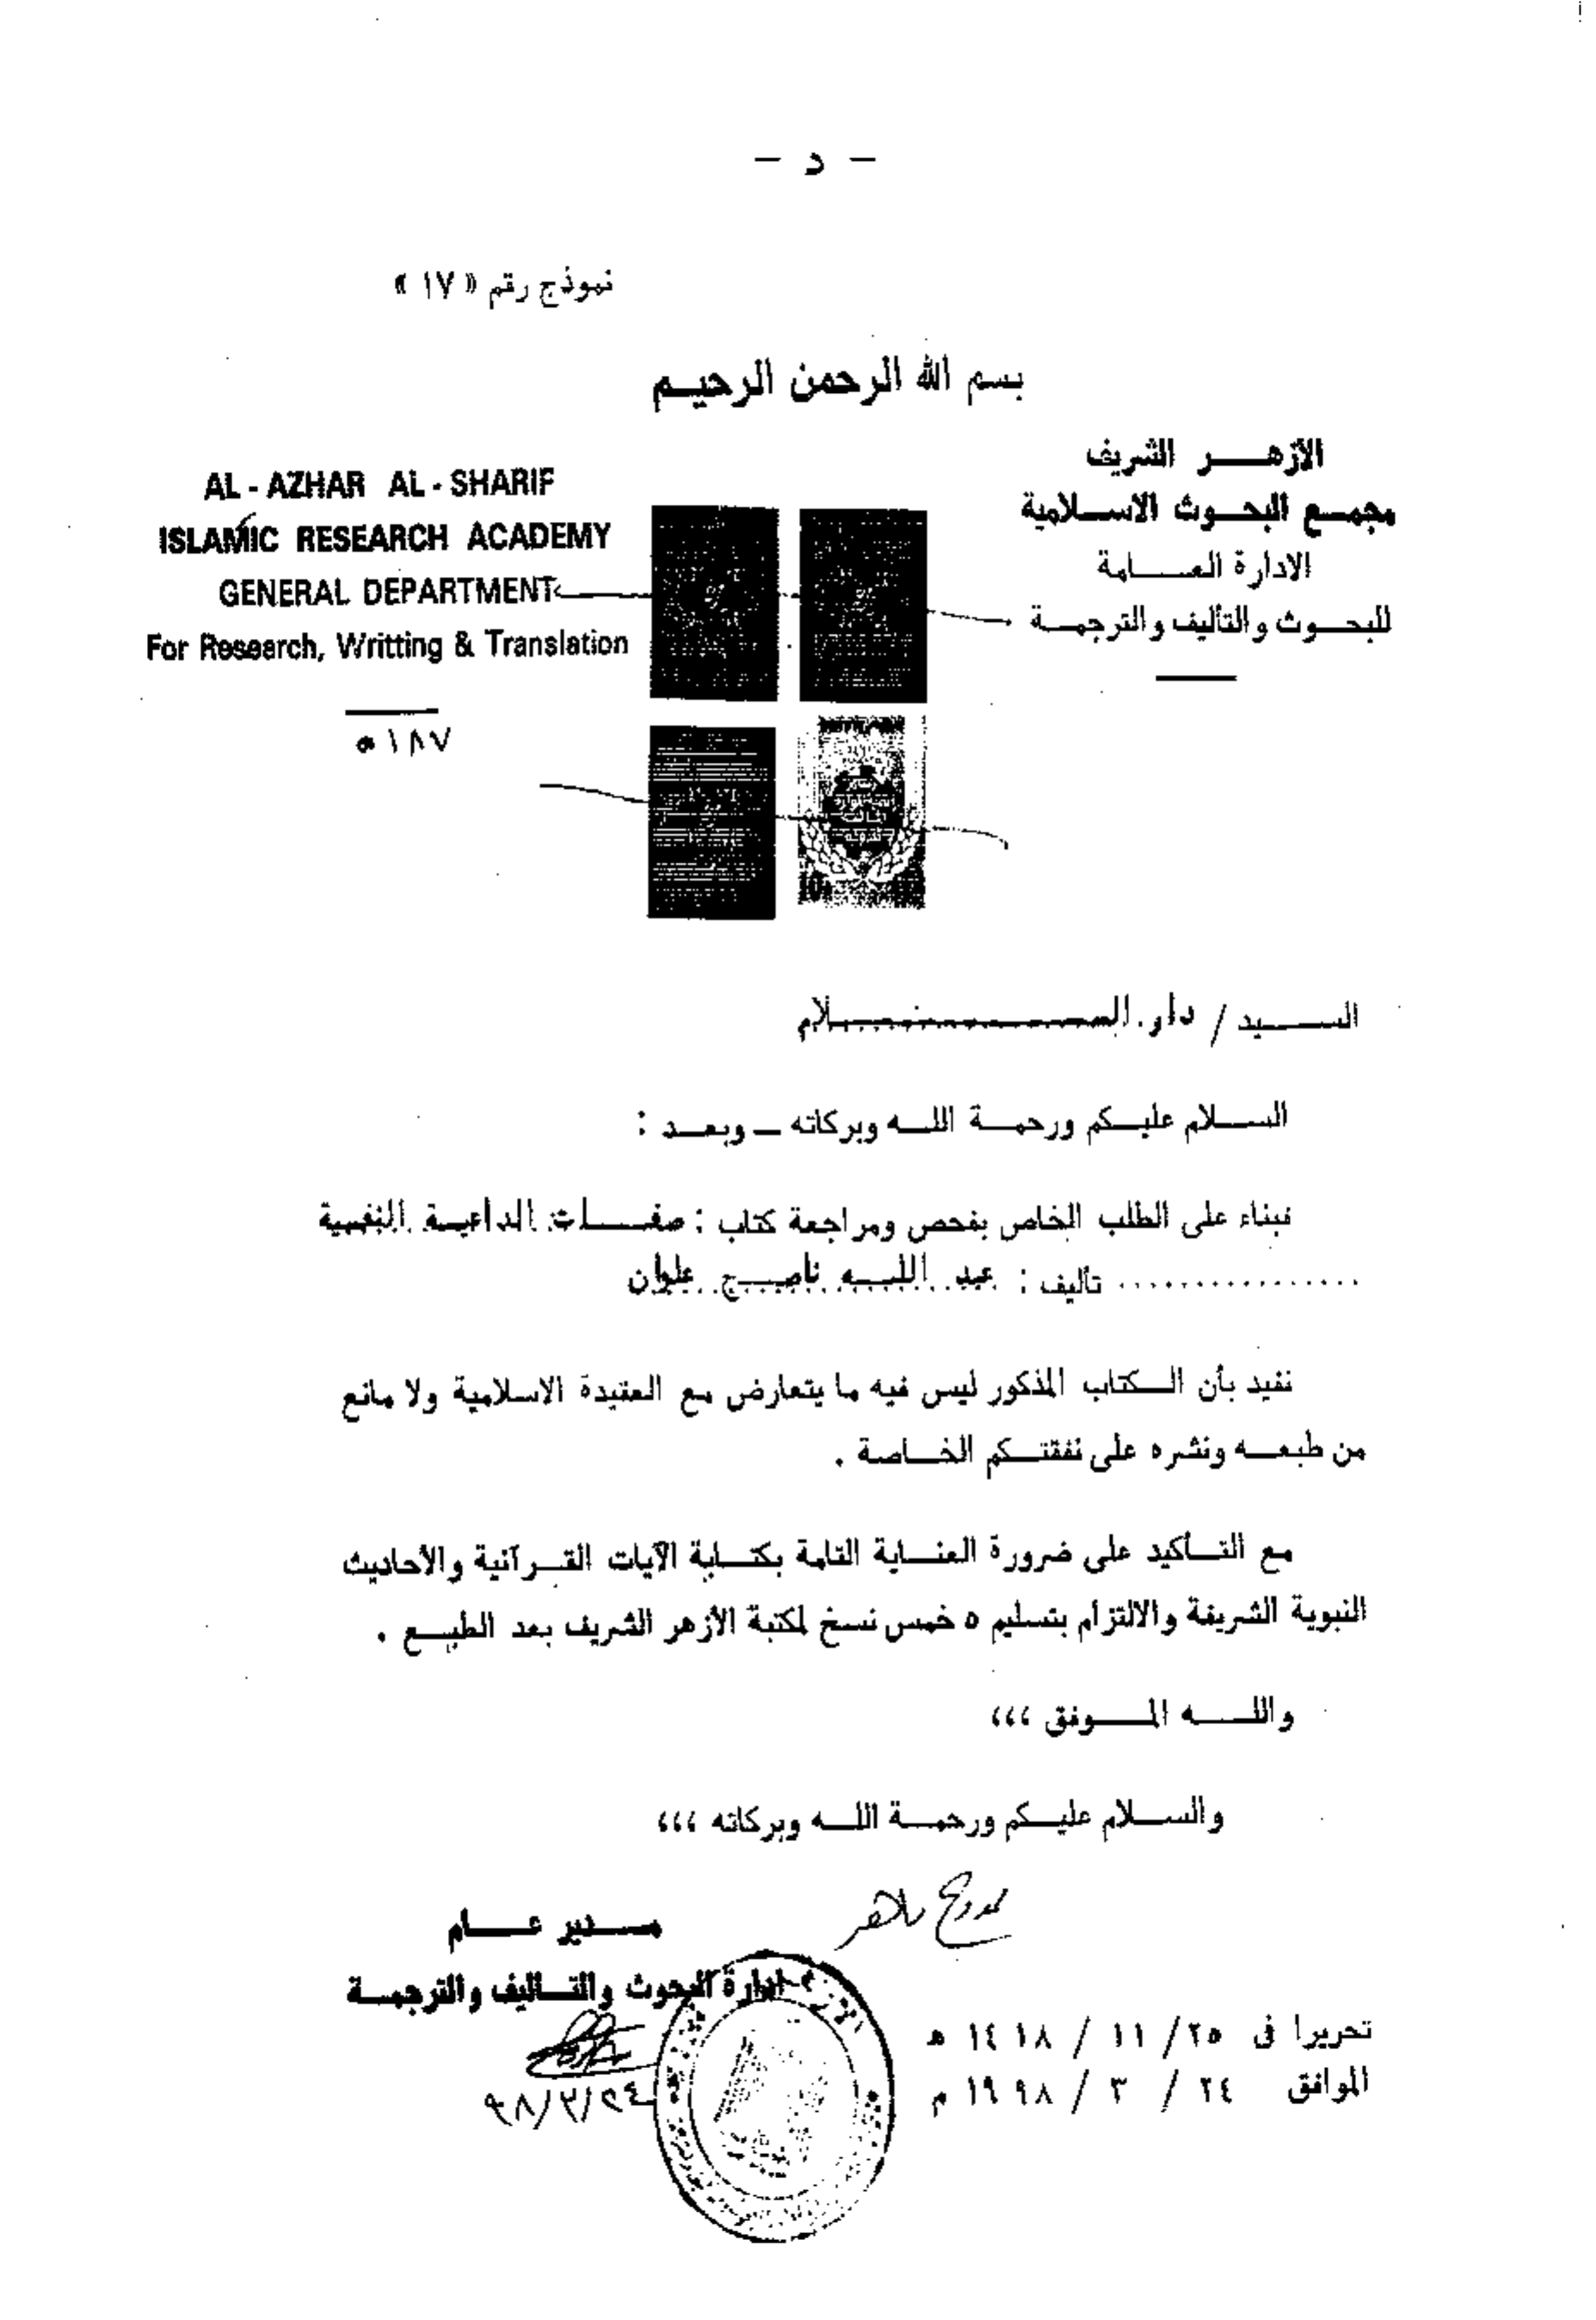 — د —
نموذج رقم « ١٧ »
بسم الله الرحمن الرحيم
الأزهر الشريف
مجمع البحوث الاسلامية
الادارة العامة
للبحوث والتأليف والترجمة
AL - AZHAR AL - SHARIF
ISLAMIC RESEARCH ACADEMY
GENERAL DEPARTMENT
For Research, Writting & Translation
٥١٨٧
السيد / دار السلام
السلام عليكم ورحمة الله وبركاته — وبعد :
فبناء على الطلب الخاص بفحص ومراجعة كتاب : صفات الداعية النفسية
................ تأليف : عبد الله ناصح علوان
نفيد بأن الكتاب المذكور ليس فيه ما يتعارض مع العقيدة الاسلامية ولا مانع
من طبعه ونشره على نفقتكم الخاصة .
مع التأكيد على ضرورة العناية التامة بكتابة الآيات القرآنية والأحاديث
النبوية الشريفة والالتزام بتسليم ٥ خمس نسخ لمكتبة الأزهر الشريف بعد الطبع .
والله الموفق ،،،
والسلام عليكم ورحمة الله وبركاته ،،،
مدير عام
ادارة البحوث والتأليف والترجمة
٩٨/٣/٢٤
تحريرا فى ٢٥ / ١١ / ١٤١٨ هـ
الموافق ٢٤ / ٣ / ١٩٩٨ م